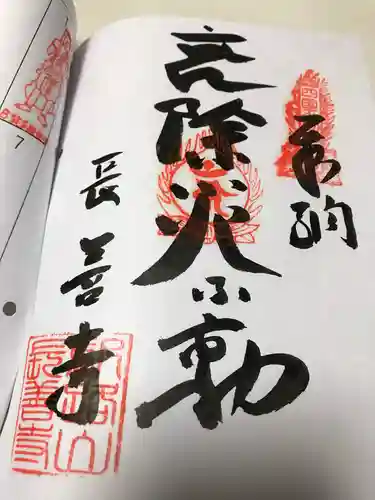 奉納
除火不動
長善寺
7
長善寺